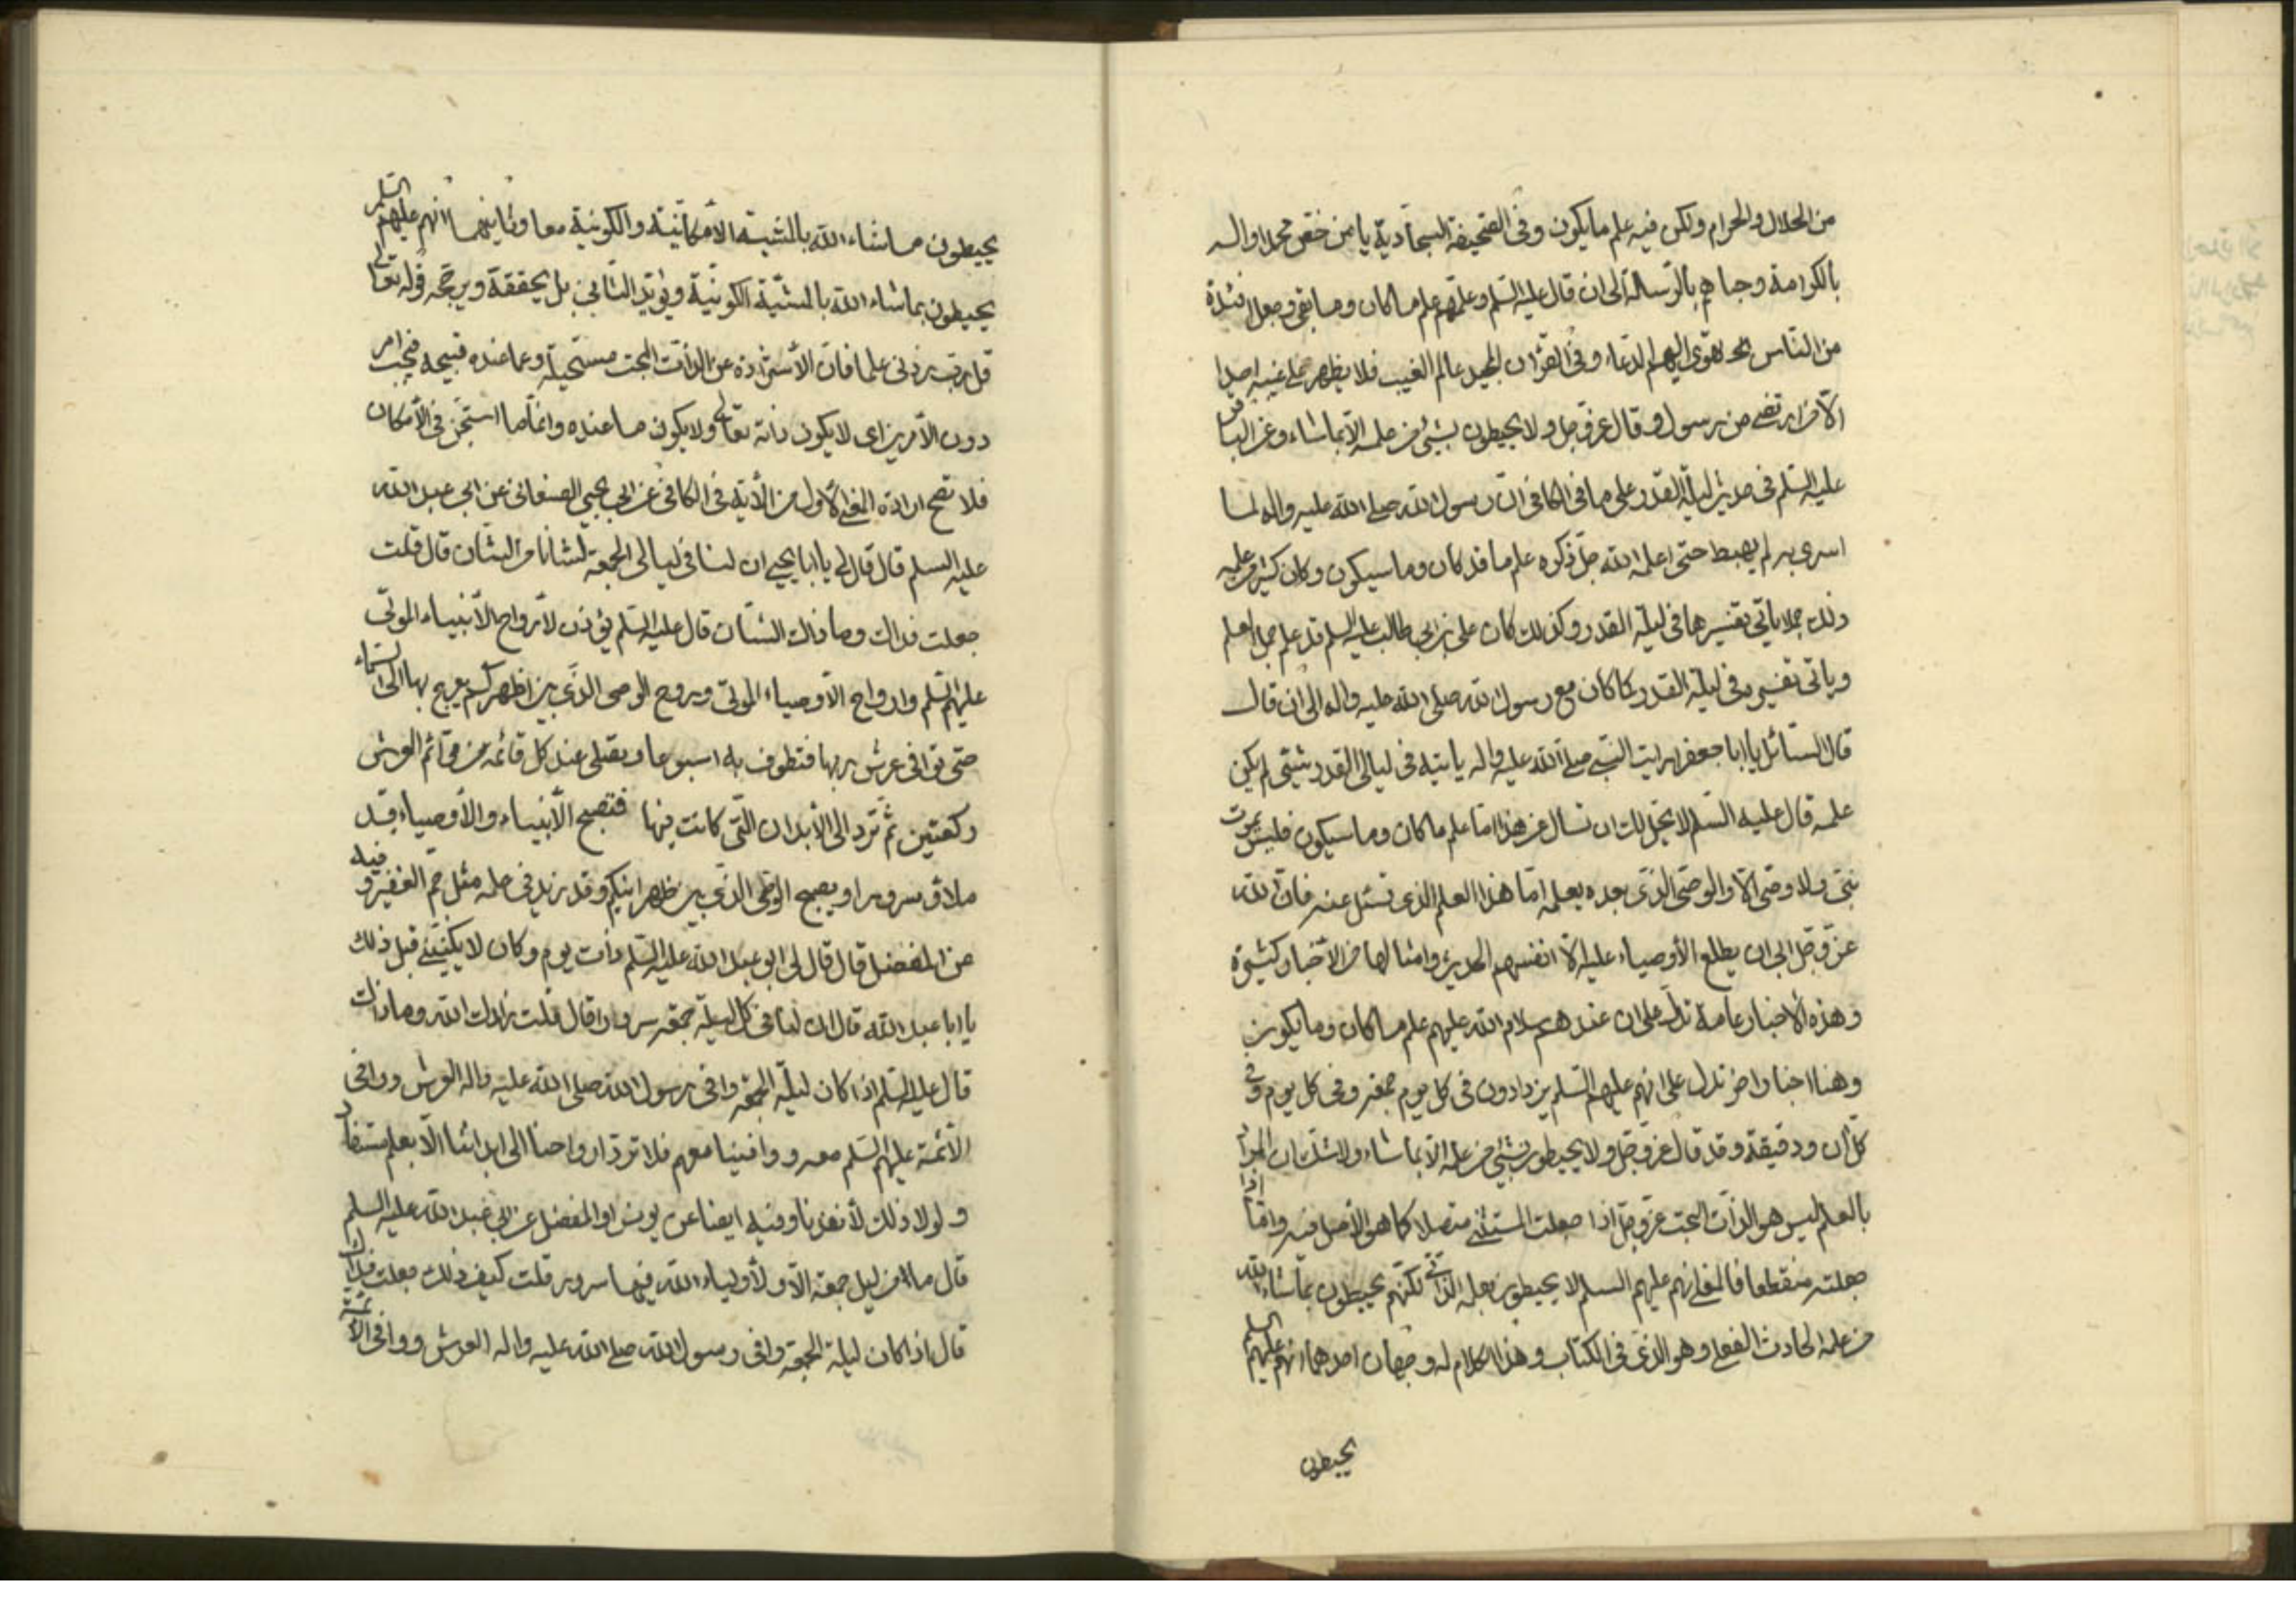 من الحلال والحرام ولكن فيه علم ما يكون وفى الصحيفة السجادية يا من خص محمدا واله
بالكرامة وحباهم بالرسالة الى ان قال عليه السلم وعلمهم علم ما كان وما بقى وجعل افئدة
من الناس تهوى اليهم الدعاء وفى القرآن المجيد عالم الغيب فلا يظهر على غيبه احدا
الا من ارتضى من رسول وقال عز وجل ولا يحيطون بشئ من علمه الا بما شاء وعن الباقر
عليه السلم فى حديث ليلة القدر على ما فى الكافى ان رسول الله صلى الله عليه واله لما
اسرى به لم يهبط حتى اعلمه الله جل ذكره علم ما قد كان وما سيكون وكان كثير من علمه
ذلك جملا يأتى تفسيرها فى ليلة القدر وكذلك كان على بن ابى طالب عليه السلم قد علم جمل العلم
ويأتى تفسيره فى ليلة القدر كما كان مع رسول الله صلى الله عليه واله الى ان قال
قال السائل يا ابا جعفر ارايت النبى صلى الله عليه واله يأتيه فى ليالى القدر شئ لم يكن
علمه قال عليه السلم لا يحل لك ان تسال عن هذا اما علم ما كان وما سيكون فليس يموت
نبى ولا وصى الا والوصى الذى بعده يعلمه اما هذا العلم الذى تسئل عنه فان الله
عز وجل ابى ان يطلع الأوصياء عليه الا انفسهم الحديث وامثالها من الاخبار كثيرة
وهذه الاخبار عامة تدل على ان عندهم سلام الله عليهم علم ما كان وما يكون
وهنا اخبار اخر تدل على انهم عليهم السلم يزدادون فى كل يوم جمعة وفى كل يوم وفى
كل آن ودقيقة وقد قال عز وجل ولا يحيطون بشئ من علمه الا بما شاء ولا شك ان المراد
بالعلم ليس هو الذات البحت عز وجل اذا جعلت المستثنى متصلا كما هو الأصل فيه واما اذا
جعلته منقطعا فالمعنى انهم عليهم السلم لا يحيطون بعلمه الذاتى لكنهم يحيطون بما شاء الله
من علمه الحادث الفعلى وهو الذى فى الكتاب وهذا الكلام له وجهان احدهما انهم عليهم السلم
يحيطون
يحيطون ما شاء الله بالمشية الامكانية والكونية معا وثانيهما انهم عليهم السلم
يحيطون بما شاء الله بالمشية الكونية ويؤيد الثانى بل يحققه ويرجحه قوله تعالى
قل رب زدنى علما فان الأستزادة عن الذات البحت مستحيلة وعما عنده قبيحه فيجب امر
دون الأمرين اى لا يكون ذاته تعالى ولا يكون ما عنده وانما استجن فى الأمكان
فلا تصح ارادة المعنى الأول من الأية فى الكافى عن ابى يحيى الصنعانى عن ابى عبد الله
عليه السلم قال قال لى يا ابا يحيى ان لنا فى ليالى الجمعة لشانا من الشان قال قلت
جعلت فداك وما ذاك الشان قال عليه السلم يؤذن لأرواح الأنبياء الموتى
عليهم السلم وارواح الأوصياء الموتى وروح الوصى الذى بين اظهركم يعرج بها الى السماء
حتى توافى عرش ربها فتطوف به اسبوعا وتصلى عند كل قائمة من قوائم العرش
ركعتين ثم ترد الى الأبدان التى كانت فيها فتصبح الأنبياء والأوصياء قد
ملأوا سرورا ويصبح الوصى الذى بين ظهرانيكم وقد زيد فى علمه مثل جم الغفير وفيه
عن المفضل قال قال لى ابو عبد الله عليه السلم ذات يوم وكان لا يكنينى قبل ذلك
يا ابا عبد الله قال ان لنا فى كل ليلة جمعة سرورا قال قلت زادك الله وما ذاك
قال عليه السلم اذا كان ليلة الجمعة وافى رسول الله صلى الله عليه واله العرش ووافى
الأئمة عليهم السلم معه ووافينا معهم فلا ترد ارواحنا الى ابداننا الا بعلم مستفاد
ولولا ذلك لأنفدنا وفيه ايضا عن يونس او المفضل عن ابى عبد الله عليه السلم
قال ما من ليلة جمعة الا ولأولياء الله فيها سرور قلت كيف ذلك جعلت فداك
قال اذا كان ليلة الجمعة وافى رسول الله صلى الله عليه واله العرش ووافى الأئمة